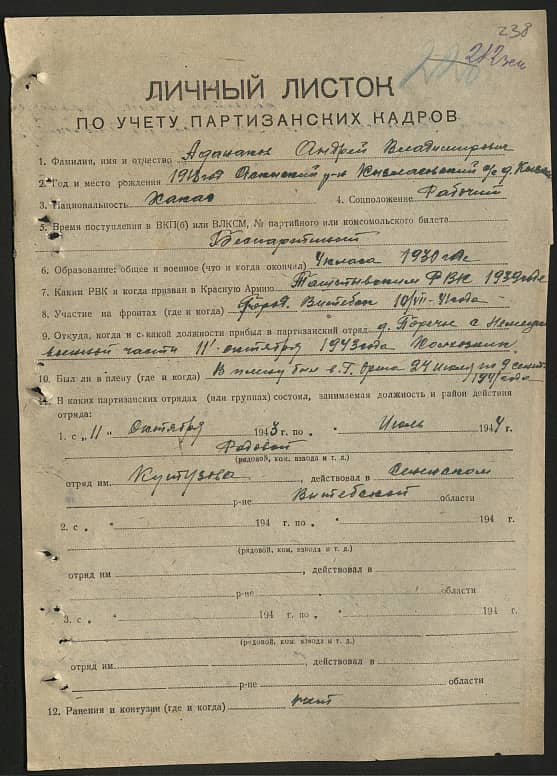 238
212
ЛИЧНЫЙ ЛИСТОК
ПО УЧЕТУ ПАРТИЗАНСКИХ КАДРОВ
1. Фамилия, имя и отчество Андрей Владимирович
2. Год и место рождения 1918 год
3. Национальность Хакас 4. Соцположение Рабочий
5. Время поступления в ВКП(б) или ВЛКСМ, № партийного или комсомольского билета
Беспартийный
6. Образование: общее и военное (что и когда окончил) 4 класса 1930 годе
7. Каким РВК и когда призван в Красную Армию Таштыпским РВК 1939 годе
8. Участие на фронтах (где и когда) Город. Витебск 10/VII-41 года
9. Откуда, когда и с какой должности прибыл в партизанский отряд д. с Немецкой
военной части 11 октября 1943 года
10. Был ли в плену (где и когда) В плену был в г. Орша 24 июля по 9 сент.
1941 года
11. В каких партизанских отрядах (или группах) состоял, занимаемая должность и район действия
отряда:
1. с „11" Октября 1943 г. по " Июль 1944 г.
Рядовой
(рядовой, ком. взвода и т. д.)
отряд им. Кутузова, действовал в Сенненском
р-не Витебской области
2. с " 194 г. по " 194 г.
(рядовой, ком. взвода и т. д.)
отряд им. , действовал в
р-не области
3. с " 194 г. по " 194 г.
(рядовой, ком. взвода и т. д.)
отряд им. , действовал в
р-не области
12. Ранения и контузии (где и когда) нет